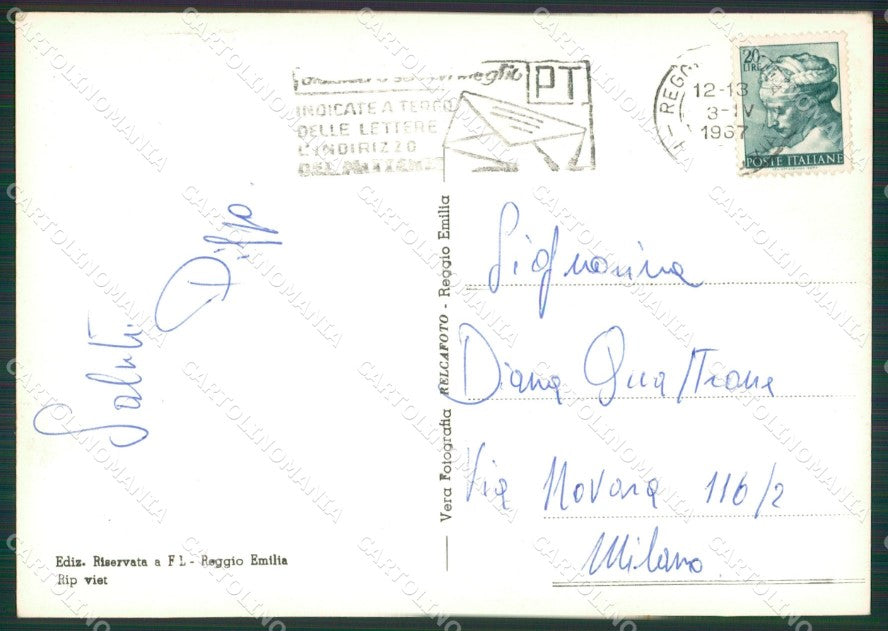 PT
INDICATE A TERGO
DELLE LETTERE
L'INDIRIZZO
DEL MITTENTE
REGG
12-13
3-IV
1967
20
LIRE
POSTE ITALIANE
Saluti
Signorina
Diana
Via Novara 116/2
Milano
Vera Fotografia RELCAFOTO - Reggio Emilia
Ediz. Riservata a F L - Reggio Emilia
Rip viet
CARTOLINOMANIA